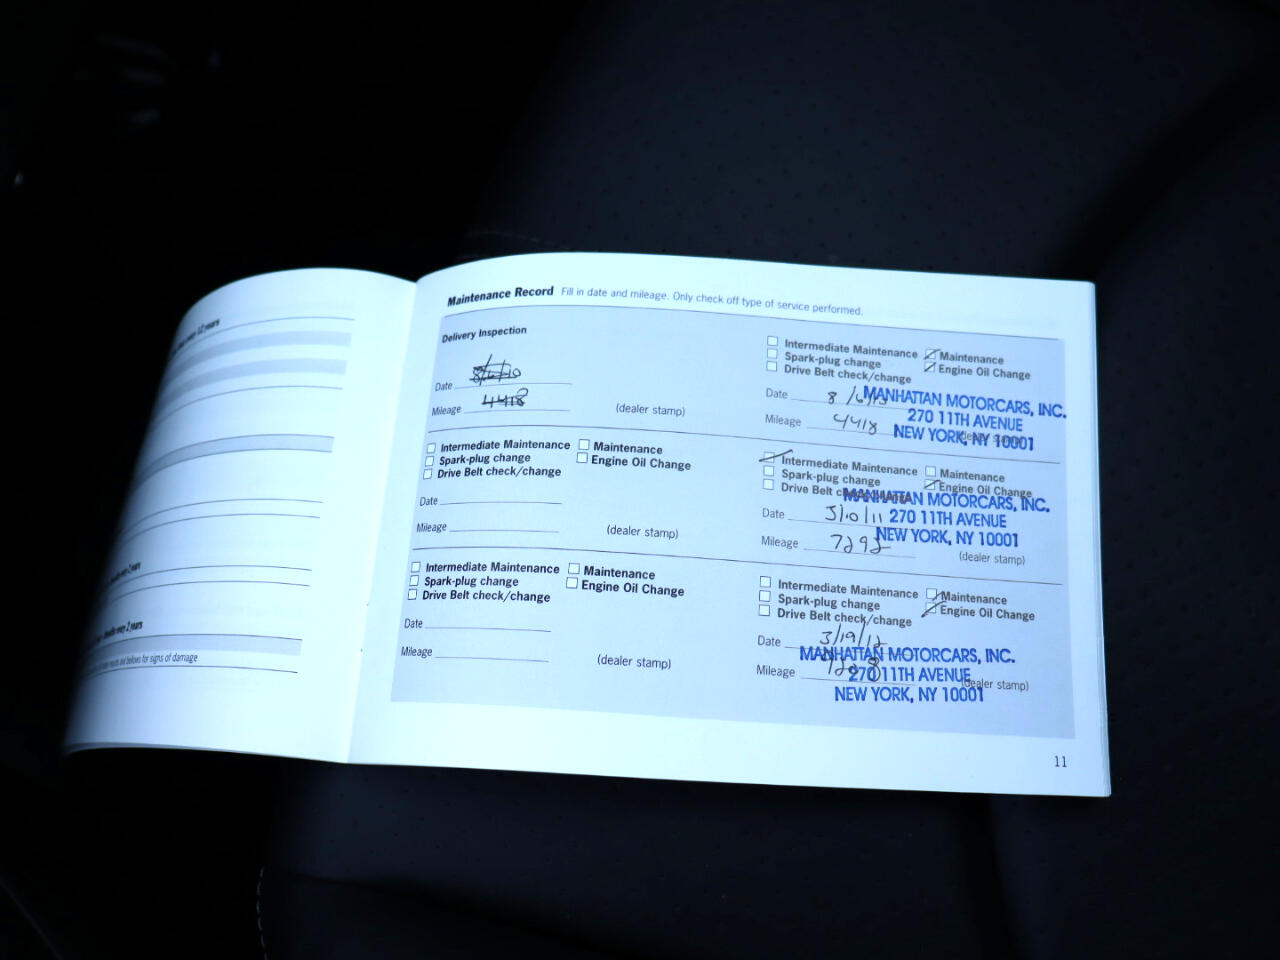 Maintenance Record Fill in date and mileage. Only check off type of service performed.
Delivery Inspection
Date 8/6/10
Mileage 4418
(dealer stamp)
Intermediate Maintenance Maintenance
Spark-plug change Engine Oil Change
Drive Belt check/change
Date
Mileage
(dealer stamp)
Intermediate Maintenance Maintenance
Spark-plug change Engine Oil Change
Drive Belt check/change
Date
Mileage
(dealer stamp)
Intermediate Maintenance Maintenance
Spark-plug change Engine Oil Change
Drive Belt check/change
Date 8/6/10
MANHATTAN MOTORCARS, INC.
270 11TH AVENUE
Mileage 4418
NEW YORK, NY 10001
Intermediate Maintenance Maintenance
Spark-plug change Engine Oil Change
Drive Belt check/change
MANHATTAN MOTORCARS, INC.
Date 3/10/11
270 11TH AVENUE
Mileage 7292
NEW YORK, NY 10001
(dealer stamp)
Intermediate Maintenance Maintenance
Spark-plug change Engine Oil Change
Drive Belt check/change
Date 3/19/12
MANHATTAN MOTORCARS, INC.
Mileage
270 11TH AVENUE
(dealer stamp)
NEW YORK, NY 10001
11
every 12 years
every 2 years
every 2 years
and bellows for signs of damage